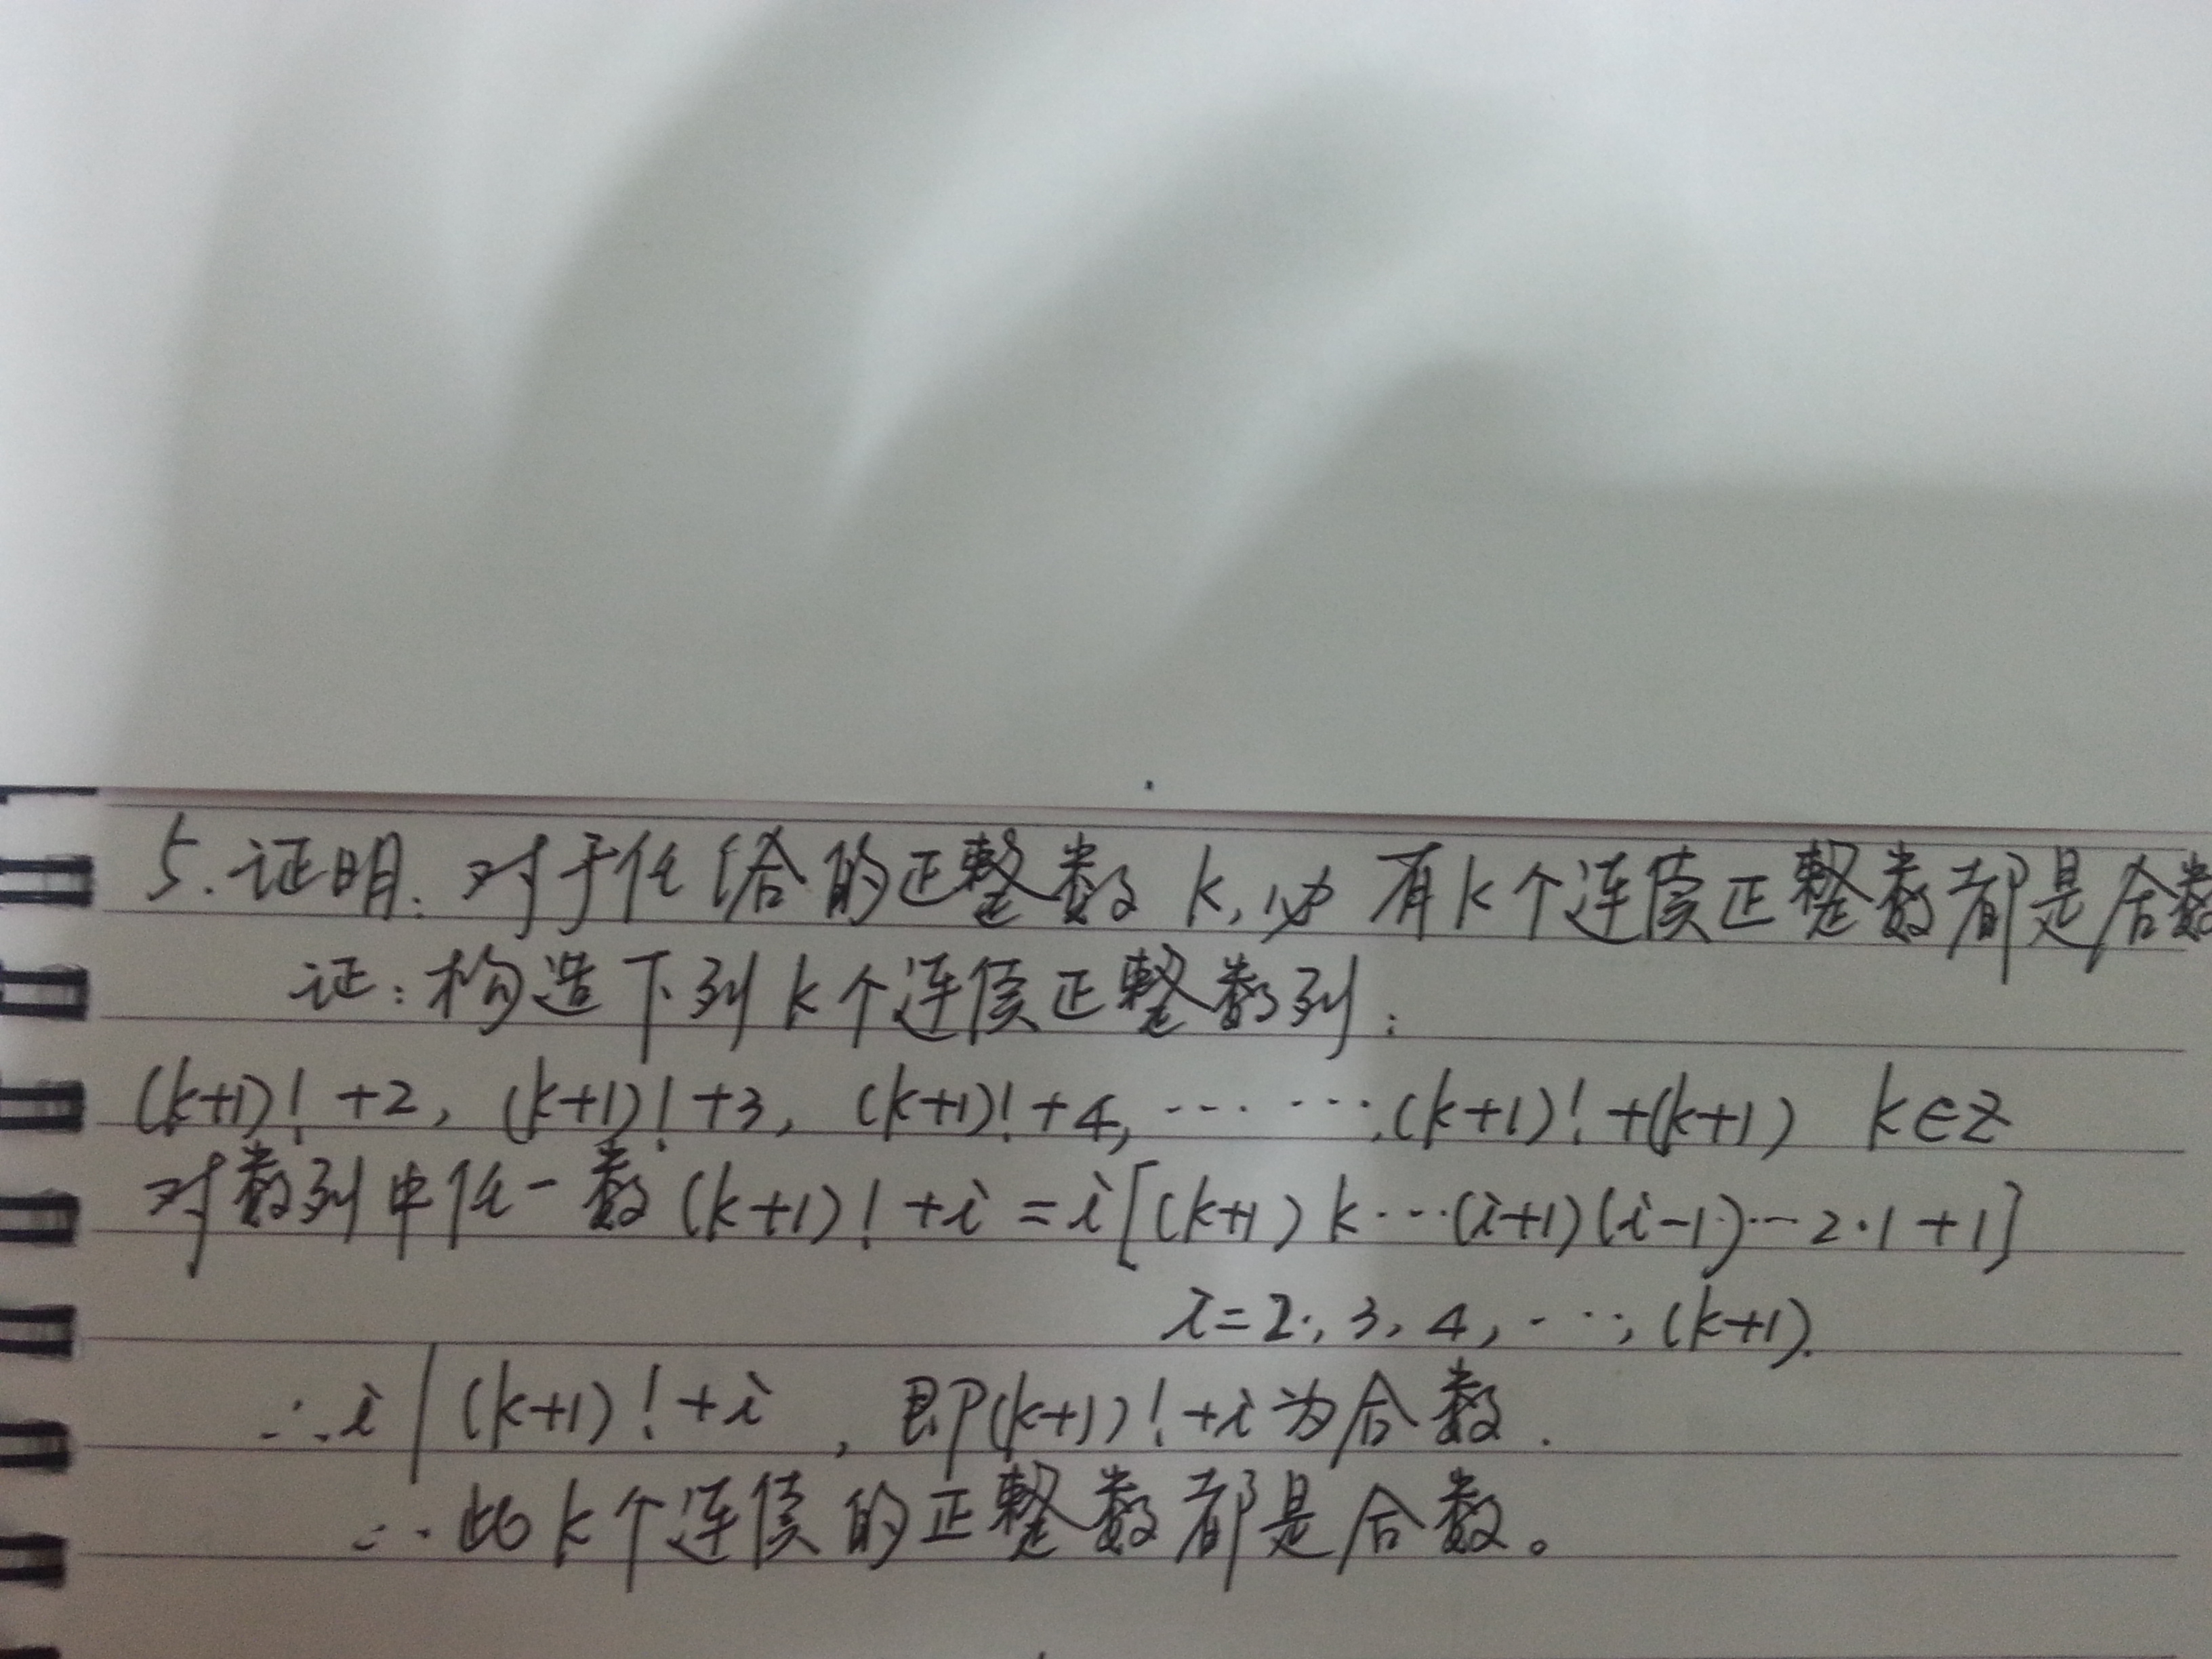 5.证明:对于任给的正整数k,必有k个连续正整数都是合数
证:构造下列k个连续正整数列:
(k+1)!+2, (k+1)!+3, (k+1)!+4, ⋯⋯,(k+1)!+(k+1) k∈Z
对数列中任一数(k+1)!+i=i[(k+1)k⋯(i+1)(i-1)⋯2·1+1]
i=2,3,4,⋯,(k+1).
∴i|(k+1)!+i,即(k+1)!+i为合数.
∴此k个连续的正整数都是合数。